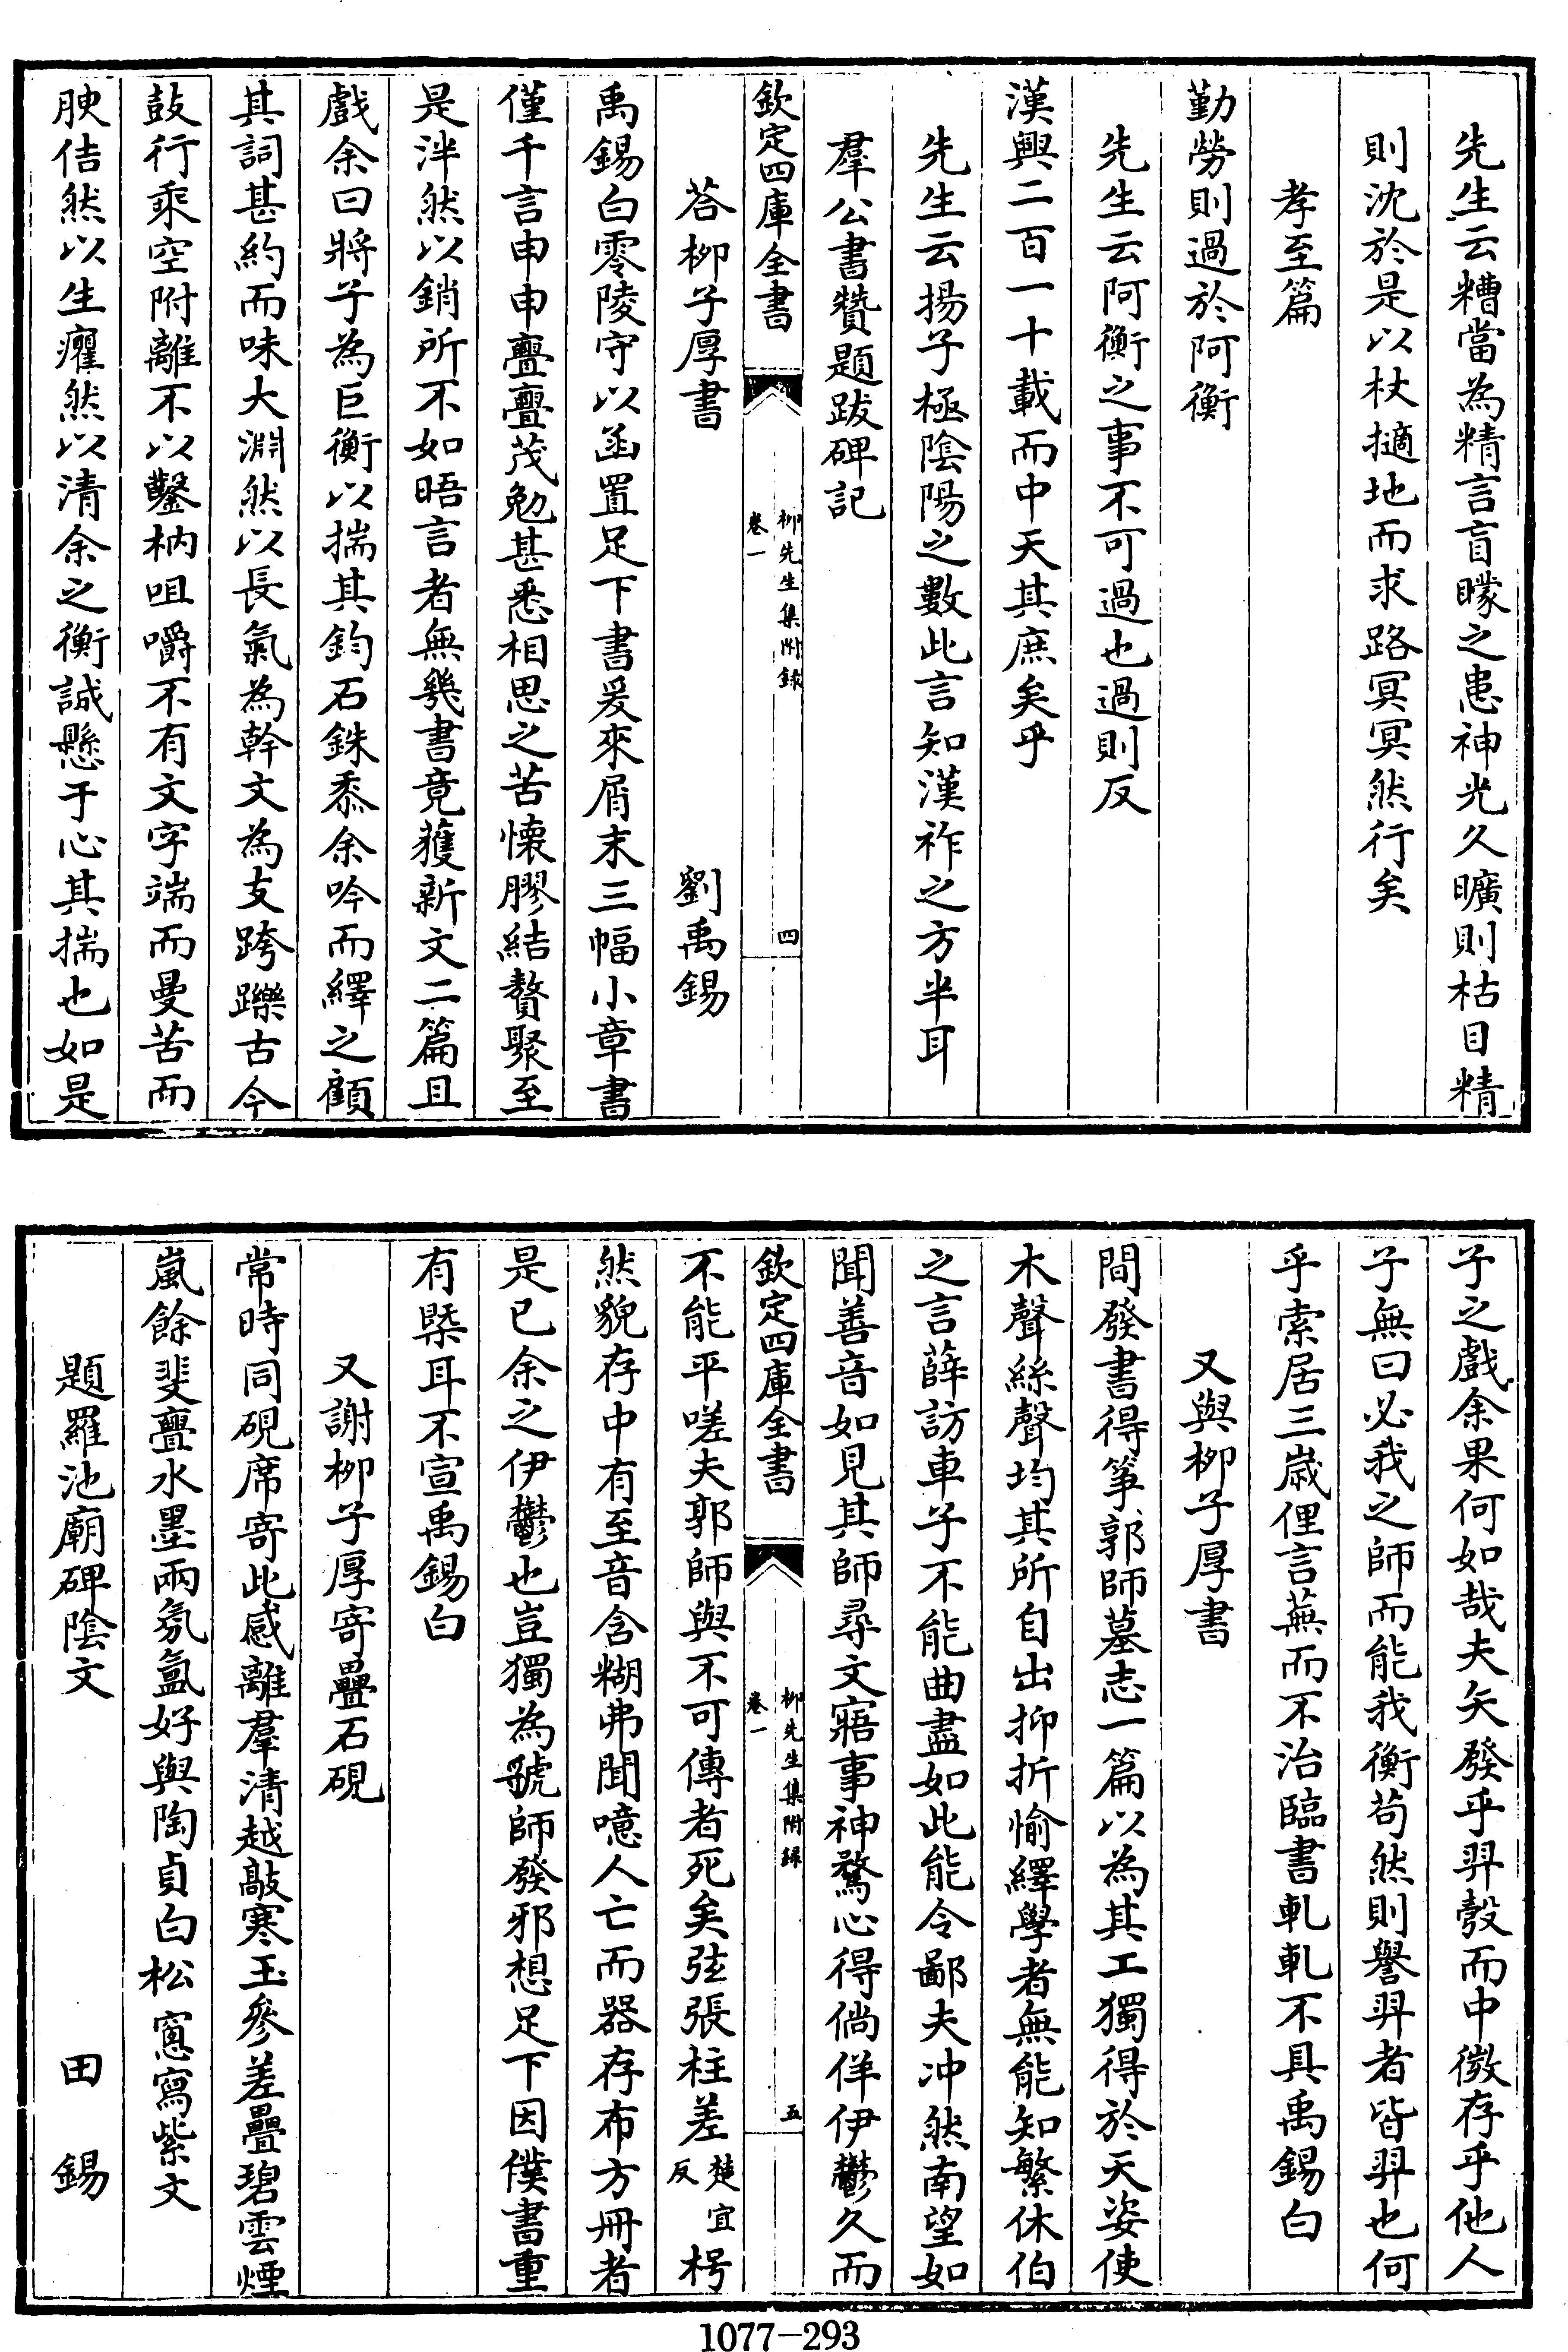 先生云糟當為精言盲矇之患神光久曠則枯目精
則沈於是以杖擿地而求路冥冥然行矣
孝至篇
勤勞則過於阿衡
先生云阿衡之事不可過也過則反
漢興二百一十載而中天其庶矣乎
先生云揚子極陰陽之數此言知漢祚之方半耳
羣公書贊題跋碑記
欽定四庫全書
柳先生集附録
卷一
四
荅柳子厚書
劉禹錫
禹錫白零陵守以函置足下書爰來屑末三幅小章書
僅千言申申亹亹茂勉甚悉相思之苦懐膠結贅聚至
是泮然以銷所不如晤言者無幾書竟蒦新文二篇且
戲余曰將子為巨衡以揣其鈞石銖黍余吟而繹之顧
其詞甚約而味大淵然以長氣為幹文為支跨躒古今
鼓行乘空附離不以鑿枘咀嚼不有文字端而曼苦而
腴佶然以生癯然以清余之衡誠懸于心其揣也如是
子之戲余果何如哉夫矢發乎羿彀而中微存乎他人
子無曰必我之師而能我衡苟然則譽羿者皆羿也何
乎索居三歳俚言蕪而不治臨書軋軋不具禹錫白
又與柳子厚書
間發書得筝郭師墓志一篇以為其工獨得於天姿使
木聲絲聲均其所自出抑折愉繹學者無能知繁休伯
之言薛訪車子不能曲盡如此能令鄙夫冲然南望如
聞善音如見其師尋文寤事神驚心得倘佯伊鬱久而
欽定四庫全書
柳先生集附録
卷一
五
不能平嗟夫郭師與不可傳者死矣弦張柱差楚宜反枵
然貌存中有至音含糊弗聞噫人亡而器存布方冊者
是已余之伊鬱也豈獨為虢師發邪想足下因僕書重
有槩耳不宣禹錫白
又謝柳子厚寄疊石硯
常時同硯席寄此感離羣清越敲寒玉參差疊碧雲煙
嵐餘斐亹水墨兩氛氲好與陶貞白松窻寫紫文
題羅池廟碑陰文
田錫
1077-293